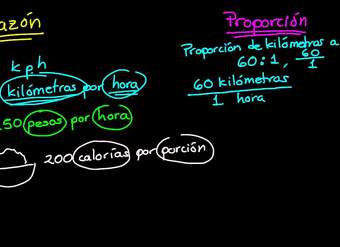 azón
k p h
kilómetras por hora
50 pesos por hora
200 calorías por porción
Proporción
Proporción de kilómetras a
60:1, 60/1
60 kilómetras
1 hora